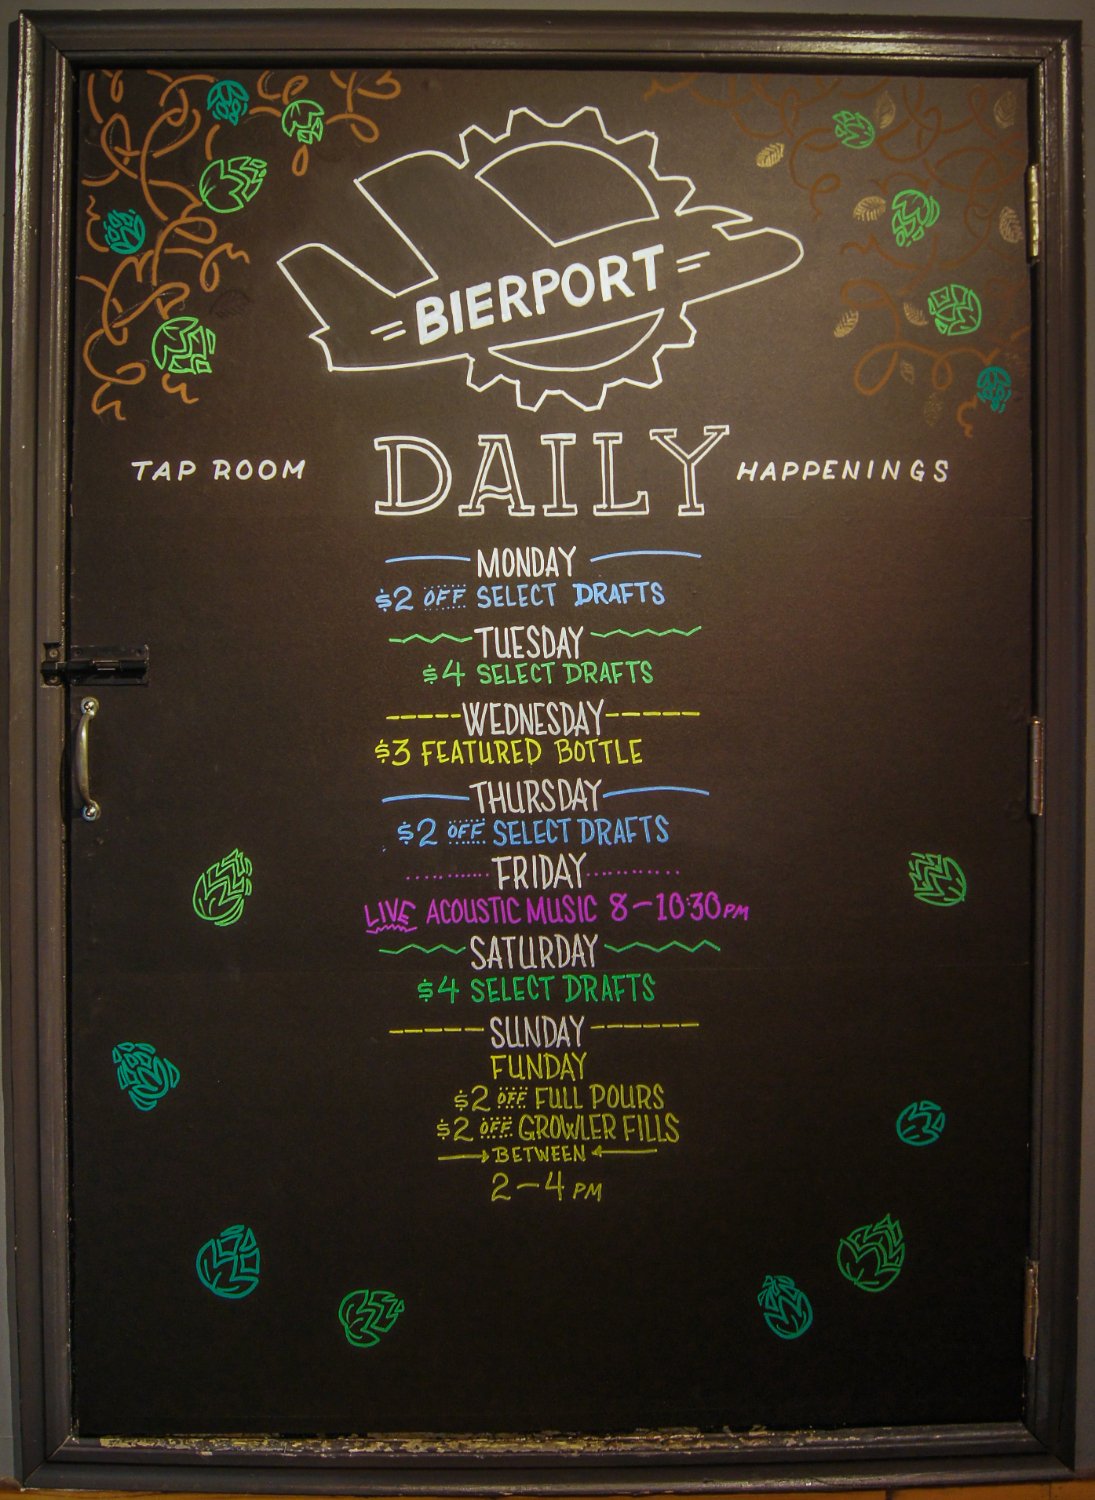 BIERPORT
TAP ROOM DAILY HAPPENINGS
MONDAY
$2 OFF SELECT DRAFTS
TUESDAY
$4 SELECT DRAFTS
WEDNESDAY
$3 FEATURED BOTTLE
THURSDAY
$2 OFF SELECT DRAFTS
FRIDAY
LIVE ACOUSTIC MUSIC 8-10:30PM
SATURDAY
$4 SELECT DRAFTS
SUNDAY
FUNDAY
$2 OFF FULL POURS
$2 OFF GROWLER FILLS
BETWEEN
2-4 PM